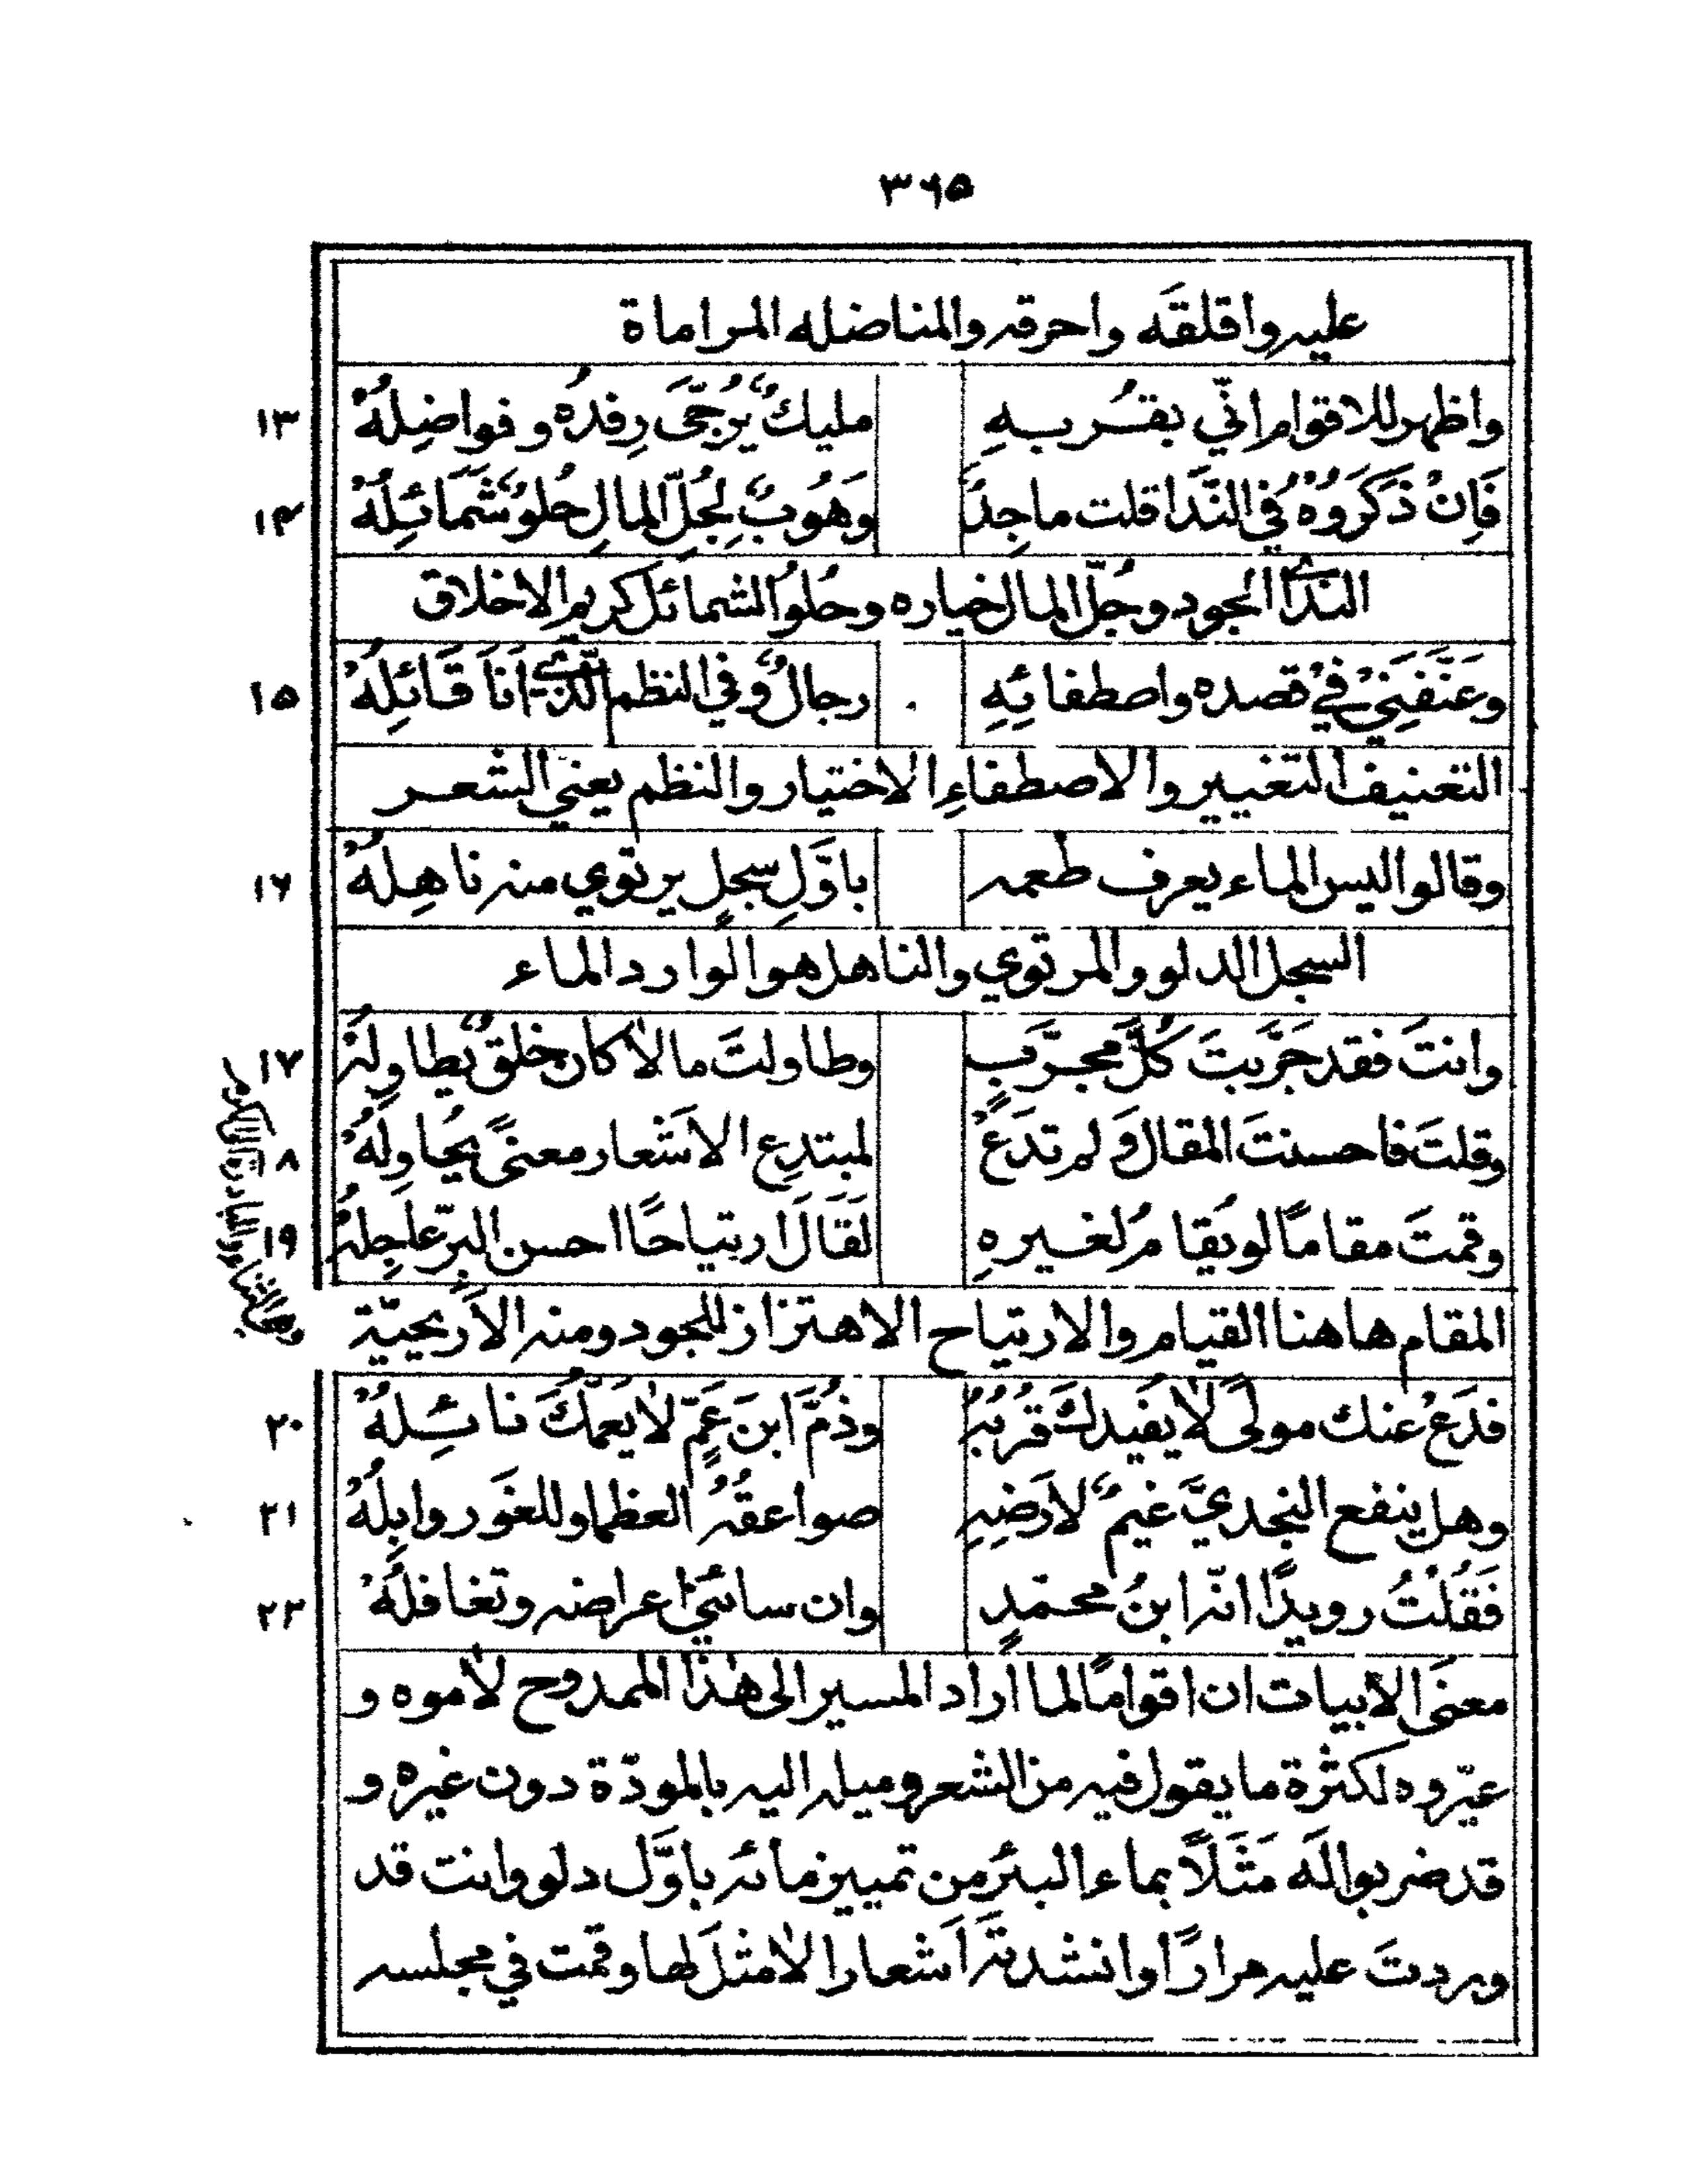 ٣٦٥
عليه واقلقَه واحرقه والمناضله المراماة
واظهر للاقوام انّي بقُربهِ مليكٌ يُرجّى رِفدُه وفواضِلُهْ ١٣
فَاِنْ ذَكَرَوُهْ في النَّدا قلت ماجِدٌ وَهُوبٌ لِجُلِّ المالِ حُلوٌ شَمَائِلُهْ ١٤
الندا الجود وجُلّ المال خياره وحُلوُ الشمائل كريم الاخلاق
وعَنَّفَنِيْ فيْ قصده واصطفائِهِ رجالٌ وفي النظم الّذي اَنَا قَائِلُهْ ١٥
التعنيف التغيير والاصطفاءِ الاختيار والنظم يعني الشعر
وقالوا اليس الماء يعرف طعمه باوَّلِ سجلٍ يرتوي منه ناهِلُهْ ١٦
السجل الدلو والمرتوي والناهل هو الوارد الماء
وانتَ فقد جَرَّبتَ كلَّ مجرَّبٍ وطاولتَ مالا كان خلقٌ يطاوِلُهْ ١٧
وقلتَ فاحسنتَ المقالَ وَلم تدَعْ لمبتدِعِ الاَشعار معنىً يُحاوِلُهْ ٨
وقمتَ مقامًا لو يُقامُ لغيرهِ لَقَالَ ارتياحًا احسن البِرّ عاجِلُهْ ١٩
المقام هاهنا القيام والارتياح الاهتزاز للجود ومنه الاَريحيّة
فدَعْ عنك مولىً لا يفيدك قُربُهُ وذُمَّ ابنَ عَمٍّ لا يَعُمّكَ نائِلُهْ ٢٠
وهل ينفع النجديَّ غيمٌ لاَرضِهِ صواعقُهُ العظما وللغَور وابِلُهْ ٢١
فَقُلْتُ رويدًا انّه ابنُ محمّدٍ وان سائني اعراضه وتغافلُهْ ٢٢
معنَى الابيات ان اقوامًا لما اراد المسير الى هٰذا الممدوح لاموه و
عيّروه لكثرة ما يقول فيه من الشعر وميله اليه بالمودّة دون غيره و
قد ضربوا له مَثَلاً بماء البئر من تمييز مائه باوَّل دلو وانت قد
وردتَ عليه مرارًا وانشدتَه اَشعارا لا مثلَ لها وقمت في مجلسه